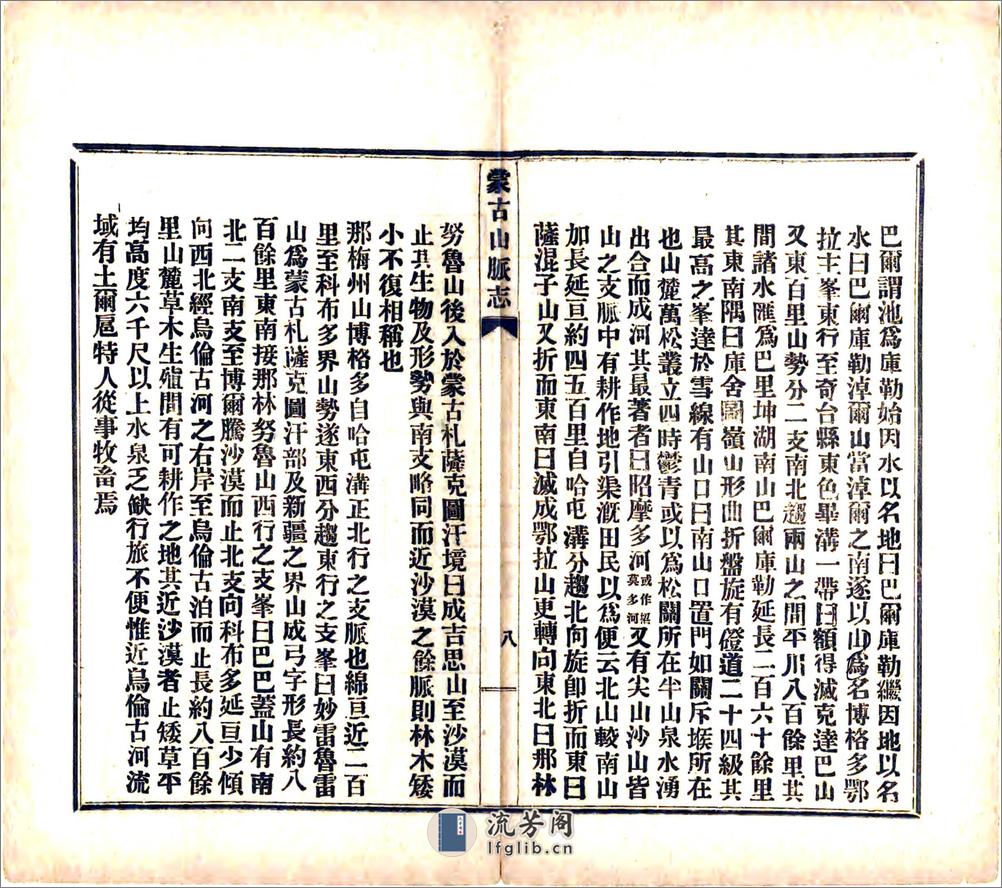 巴爾謂池爲庫勒始因水以名地曰巴爾庫勒繼因地以名
水曰巴爾庫勒淖爾山當淖爾之南遂以山爲名博格多鄂
拉主峯東行至奇台縣東色畢溝一帶曰額得滅克達巴山
又東百里山勢分二支南北趨兩山之間平川八百餘里其
間諸水匯爲巴里坤湖南山巴爾庫勒延長二百六十餘里
其東南隅曰庫舍圖嶺山形曲折盤旋有磴道二十四級其
最高之峯達於雪線有山口曰南山口置門如關斥堠所在
也山麓萬松叢立四時鬱青或以爲松關所在半山泉水湧
出合而成河其最著者曰昭摩多河或作招莫多河又有尖山沙山皆
山之支脈中有耕作地引渠溉田民以爲便云北山較南山
加長延亘約四五百里自哈屯溝分趨北向旋卽折而東曰
薩混子山又折而東南曰滅成鄂拉山更轉向東北曰那林
蒙古山脈志
八
努魯山後入於蒙古札薩克圖汗境曰成吉思山至沙漠而
止其生物及形勢與南支略同而近沙漠之餘脈則林木矮
小不復相稱也
那梅州山博格多自哈屯溝正北行之支脈也綿亘近二百
里至科布多界山勢遂東西分趨東行之支峯曰妙雷魯雷
山爲蒙古札薩克圖汗部及新疆之界山成弓字形長約八
百餘里東南接那林努魯山西行之支峯曰巴巴蓋山有南
北二支南支至博爾騰沙漠而止北支向科布多延亘少傾
向西北經烏倫古河之右岸至烏倫古泊而止長約八百餘
里山麓草木生殖間有可耕作之地其近沙漠者止矮草平
均高度六千尺以上水泉乏缺行旅不便惟近烏倫古河流
域有土爾扈特人從事牧畜焉
流芳阁
lfglib.cn